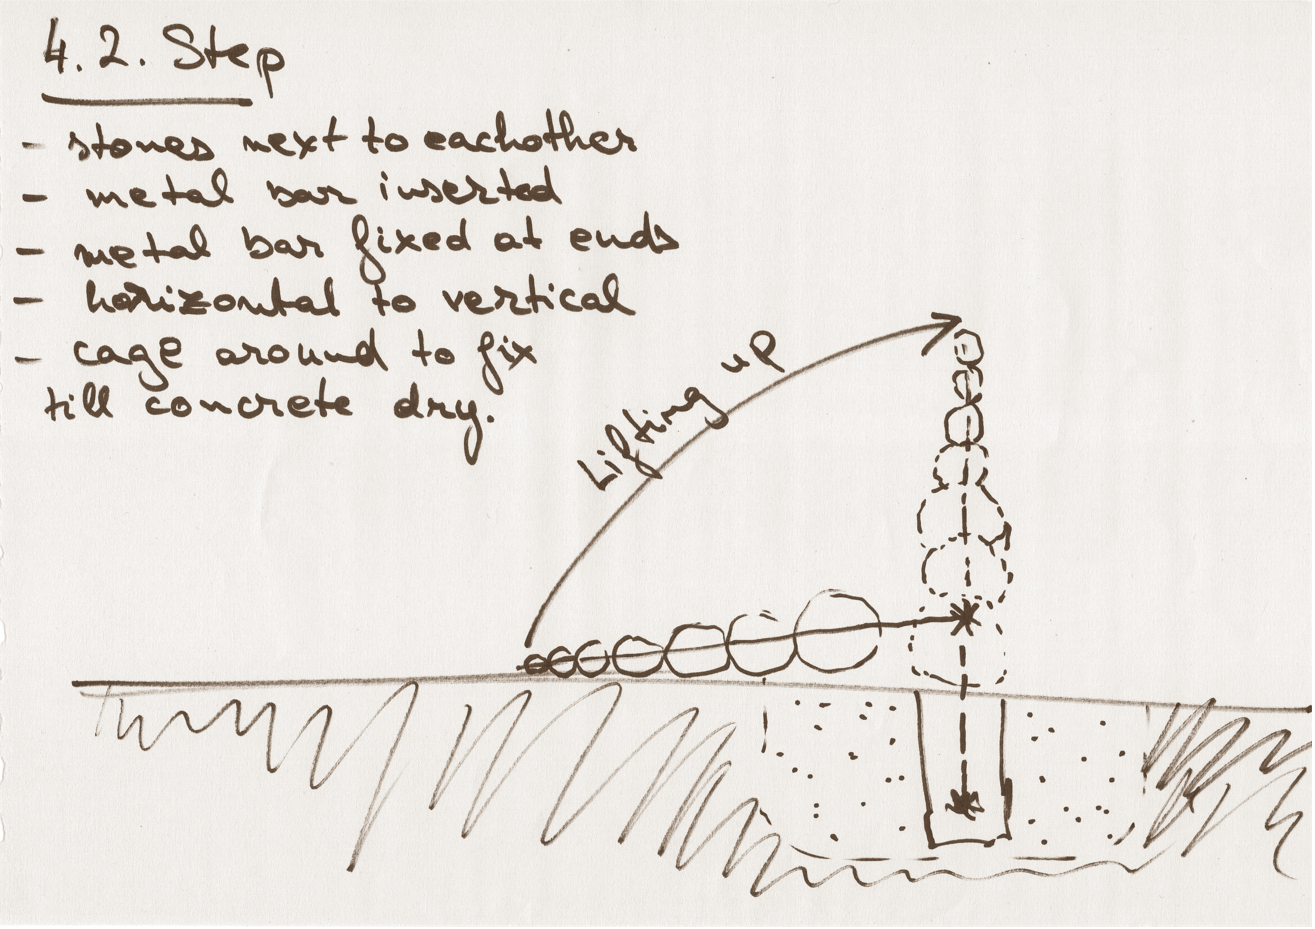 4.2. Step
- stones next to eachother
- metal bar inserted
- metal bar fixed at ends
- horizontal to vertical
- cage around to fix
till concrete dry.
Lifting up